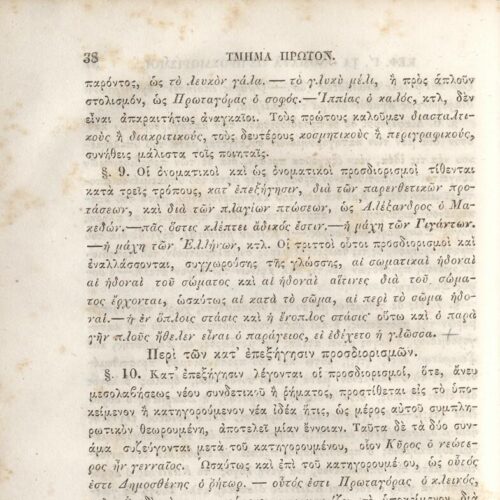 38 ΤΜΗΜΑ ΠΡΩΤΟΝ.
παρόντος, ὡς τὸ λευκὸν γάλα.—τὸ γλυκὺ μέλι, ἢ πρὸς ἁπλοῦν
στολισμόν, ὡς Πρωταγόρας ὁ σοφός.—Ἱππίας ὁ καλός, κτλ, δὲν
εἶναι ἀπαραιτήτως ἀναγκαῖοι. Τοὺς πρώτους καλοῦμεν διασταλτι-
κοὺς ἢ διακριτικούς, τοὺς δευτέρους κοσμητικοὺς ἢ περιγραφικούς,
συνήθεις μάλιστα τοῖς ποιηταῖς.
§. 9. Οἱ ὀνοματικοὶ καὶ ὡς ὀνοματικοὶ προσδιορισμοὶ τίθενται
κατὰ τρεῖς τρόπους, κατ' ἐπεξήγησιν, διὰ τῶν παρενθετικῶν προ-
τάσεων, καὶ διὰ τῶν πλαγίων πτώσεων, ὡς Ἀλέξανδρος ὁ Μα-
κεδών.—πᾶς ὅστις κλέπτει ἄδικός ἐστιν.—ἡ μάχη τῶν Γιγάντων.
—ἡ μάχη τῶν Ἑλλήνων, κτλ. Οἱ τριττοὶ οὗτοι προσδιορισμοὶ καὶ
ἐναλλάσσονται, συγχωρούσης τῆς γλώσσης, αἱ σωματικαὶ ἡδοναὶ
αἱ ἡδοναὶ τοῦ σώματος καὶ αἱ ἡδοναὶ αἵτινες διὰ τοῦ σώμα-
τος ἔρχονται, ὡσαύτως αἱ κατὰ τὸ σῶμα, αἱ περὶ τὸ σῶμα ἡδο-
ναί.—ἡ ἐν ὅπλοις στάσις καὶ ἡ ἔνοπλος στάσις· οὕτω καὶ ὁ παρὰ
γῆν πλοῦς ἤθελεν εἶναι ὁ παράγειος, εἰ ἐδέχετο ἡ γλῶσσα.
Περὶ τῶν κατ' ἐπεξήγησιν προσδιορισμῶν.
§. 10. Κατ' ἐπεξήγησιν λέγονται οἱ προσδιορισμοί, ὅτε, ἄνευ
μεσολαβήσεως νέου συνδετικοῦ ἢ ῥήματος, προστίθεται εἰς τὸ ὑπο-
κείμενον ἢ κατηγορούμενον νέα ἰδέα ἥτις, ὡς μέρος αὐτοῦ συμπλη-
ρωτικὸν θεωρουμένη, ἀποτελεῖ μίαν ἔννοιαν. Ταῦτα δὲ τὰ δύο συνά-
αμα συζεύγονται μετὰ τοῦ κατηγορουμένου, οἷον Κῦρος ὁ νεώτε-
ρος ἦν γενναῖος. Ὡσαύτως καὶ ἐπὶ τοῦ κατηγορουμένου, ὡς οὗτός
ἐστι Δημοσθένης ὁ ῥήτωρ.—οὗτός ἐστι Πρωταγόρας ὁ κλεινός,